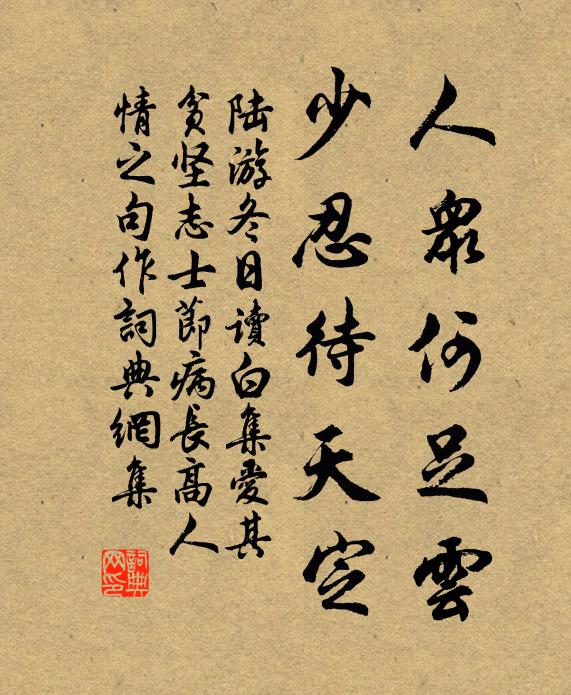 人眾何足雲
少忍待天定
陆游冬日讀白集愛其
貧坚志士節病長高人
情之句作詞典網集
詞典网印